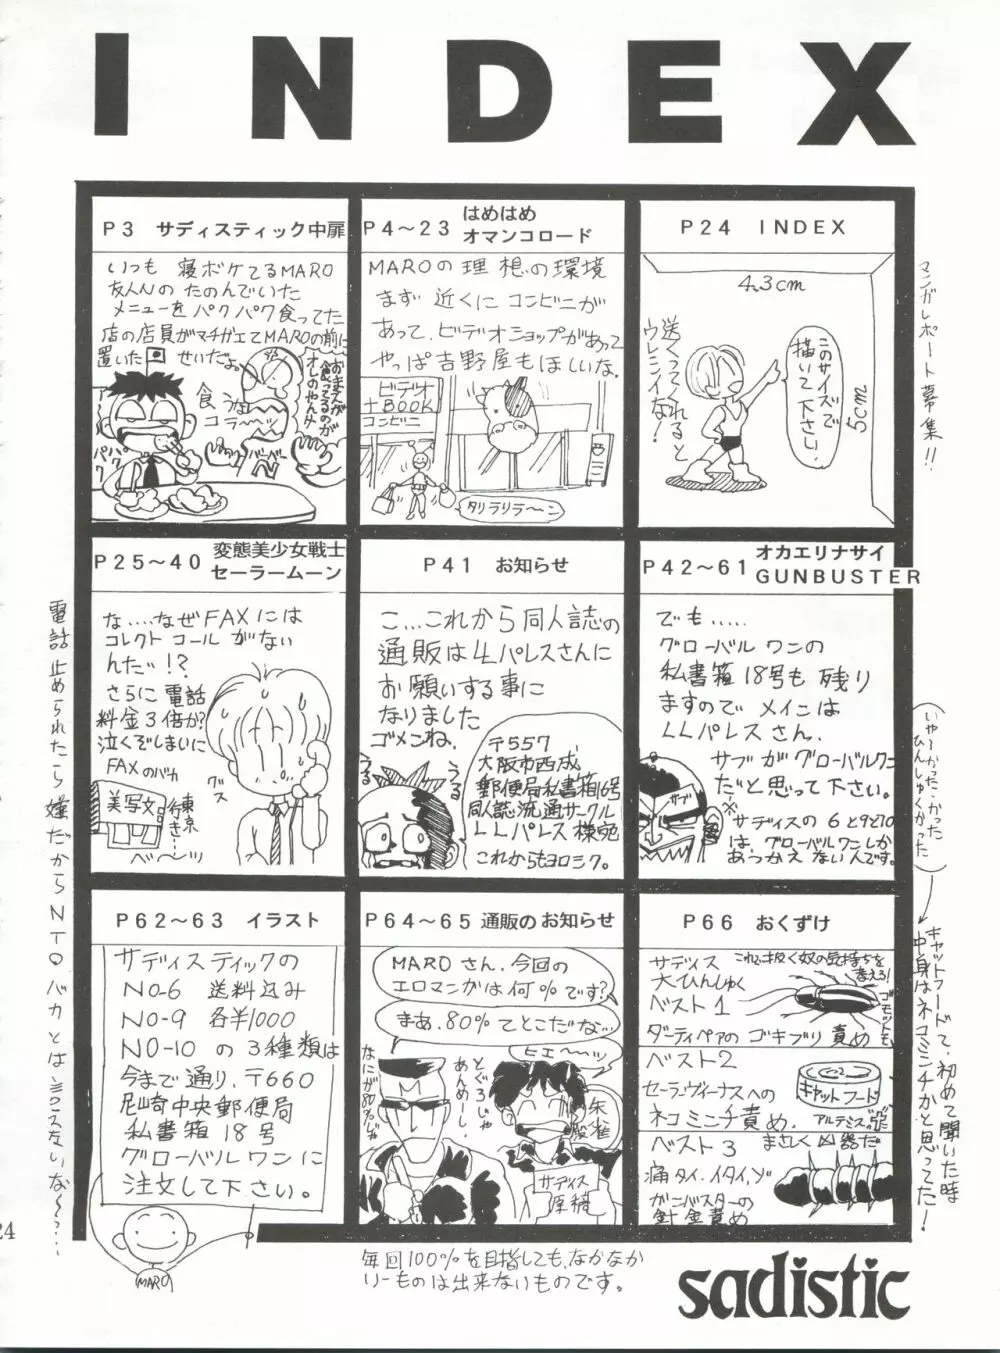 INDEX
P3 サディスティック中扉
いつも 寝ボケてるMARO
友人Nの たのんでいた
メニューを パクパク食ってた
店の店員がマチガエてMAROの前に
置いた せいだ。
おまえが
食ってるのが
オレのやんけ
食
うな
コラ〜〜ッ
パク
パク
P4〜23 はめはめ
オマンコロード
MAROの 理想の環境
まず 近くに コンビニが
あって、ビデオショップがあって
やっぱ 吉野屋もほしいな。
ビデオ
+BOOK
コンビニ
タリラリラ〜ン
P24 INDEX
4.3cm
5cm
このサイズで
描いて下さい。
送ってくれると
ウレシイな!
マンガレポート募集!!
P25〜40 変態美少女戦士
セーラームーン
な....なぜFAXには
コレクト コールがない
んだッ!?
さらに 電話
料金3倍か?
泣くぞしまいに
FAXのバカ
グス
美写文
東京
行き
ベ〜〜ッ
電話止められたら嫌だからNTQバカとは言えないな〜?…
P41 お知らせ
こ...これから同人誌の
通販はLLパレスさんに
お願いする事に
なりました
ゴメンね。
うる
うる
〒557
大阪市西成
郵便局私書箱6号
同人誌流通サークル
LLパレス 様宛
これからもヨロシク。
P42〜61 オカエリナサイ
GUNBUSTER
でも.....
グローバルワンの
私書箱18号も残り
ますので メインは
LLパレスさん、
サブがグローバルワン
だと思って下さい。
サブ
※
サディスの6と9と10
は、グローバルワンしか
あつかえないんです。
いや〜かった・かった
ひんしゅくかった
P62〜63 イラスト
サディスティックの
NO-6 送料込み
NO-9 各半1000
NO-10 の3種類は
今まで通り、〒660
尼崎中央郵便局
私書箱 18号
グローバルワンに
注文して下さい。
MARO
P64〜65 通販のお知らせ
MAROさん、今回の
エロマンガは何%です?
まあ、80%てとこだな…
なにが80%じゃ
とぐろじゃ
あんめーし。
ヒエ〜〜ッ
朱雀
サディス
原稿
毎回100%を目指しても、なかなか
リーものは出来ないものです。
P66 おくずけ
サディス
大ひんしゅく
ベスト1
これで抜く奴の気持ちを
考えろ!
ゴモットも
ダーティペアの ゴキブリ責め
ベスト2
キャットフード
セーラーヴィーナスへの
ネコミニチ責め、
アルテミス
ベスト3
まさしく凶器だ
痛タイ、イタイ、ゾ
ガンバスターの
針金責め
キャットフードって、初めて聞いた時
中身はネコミンチかと思ってた!
24
sadistic